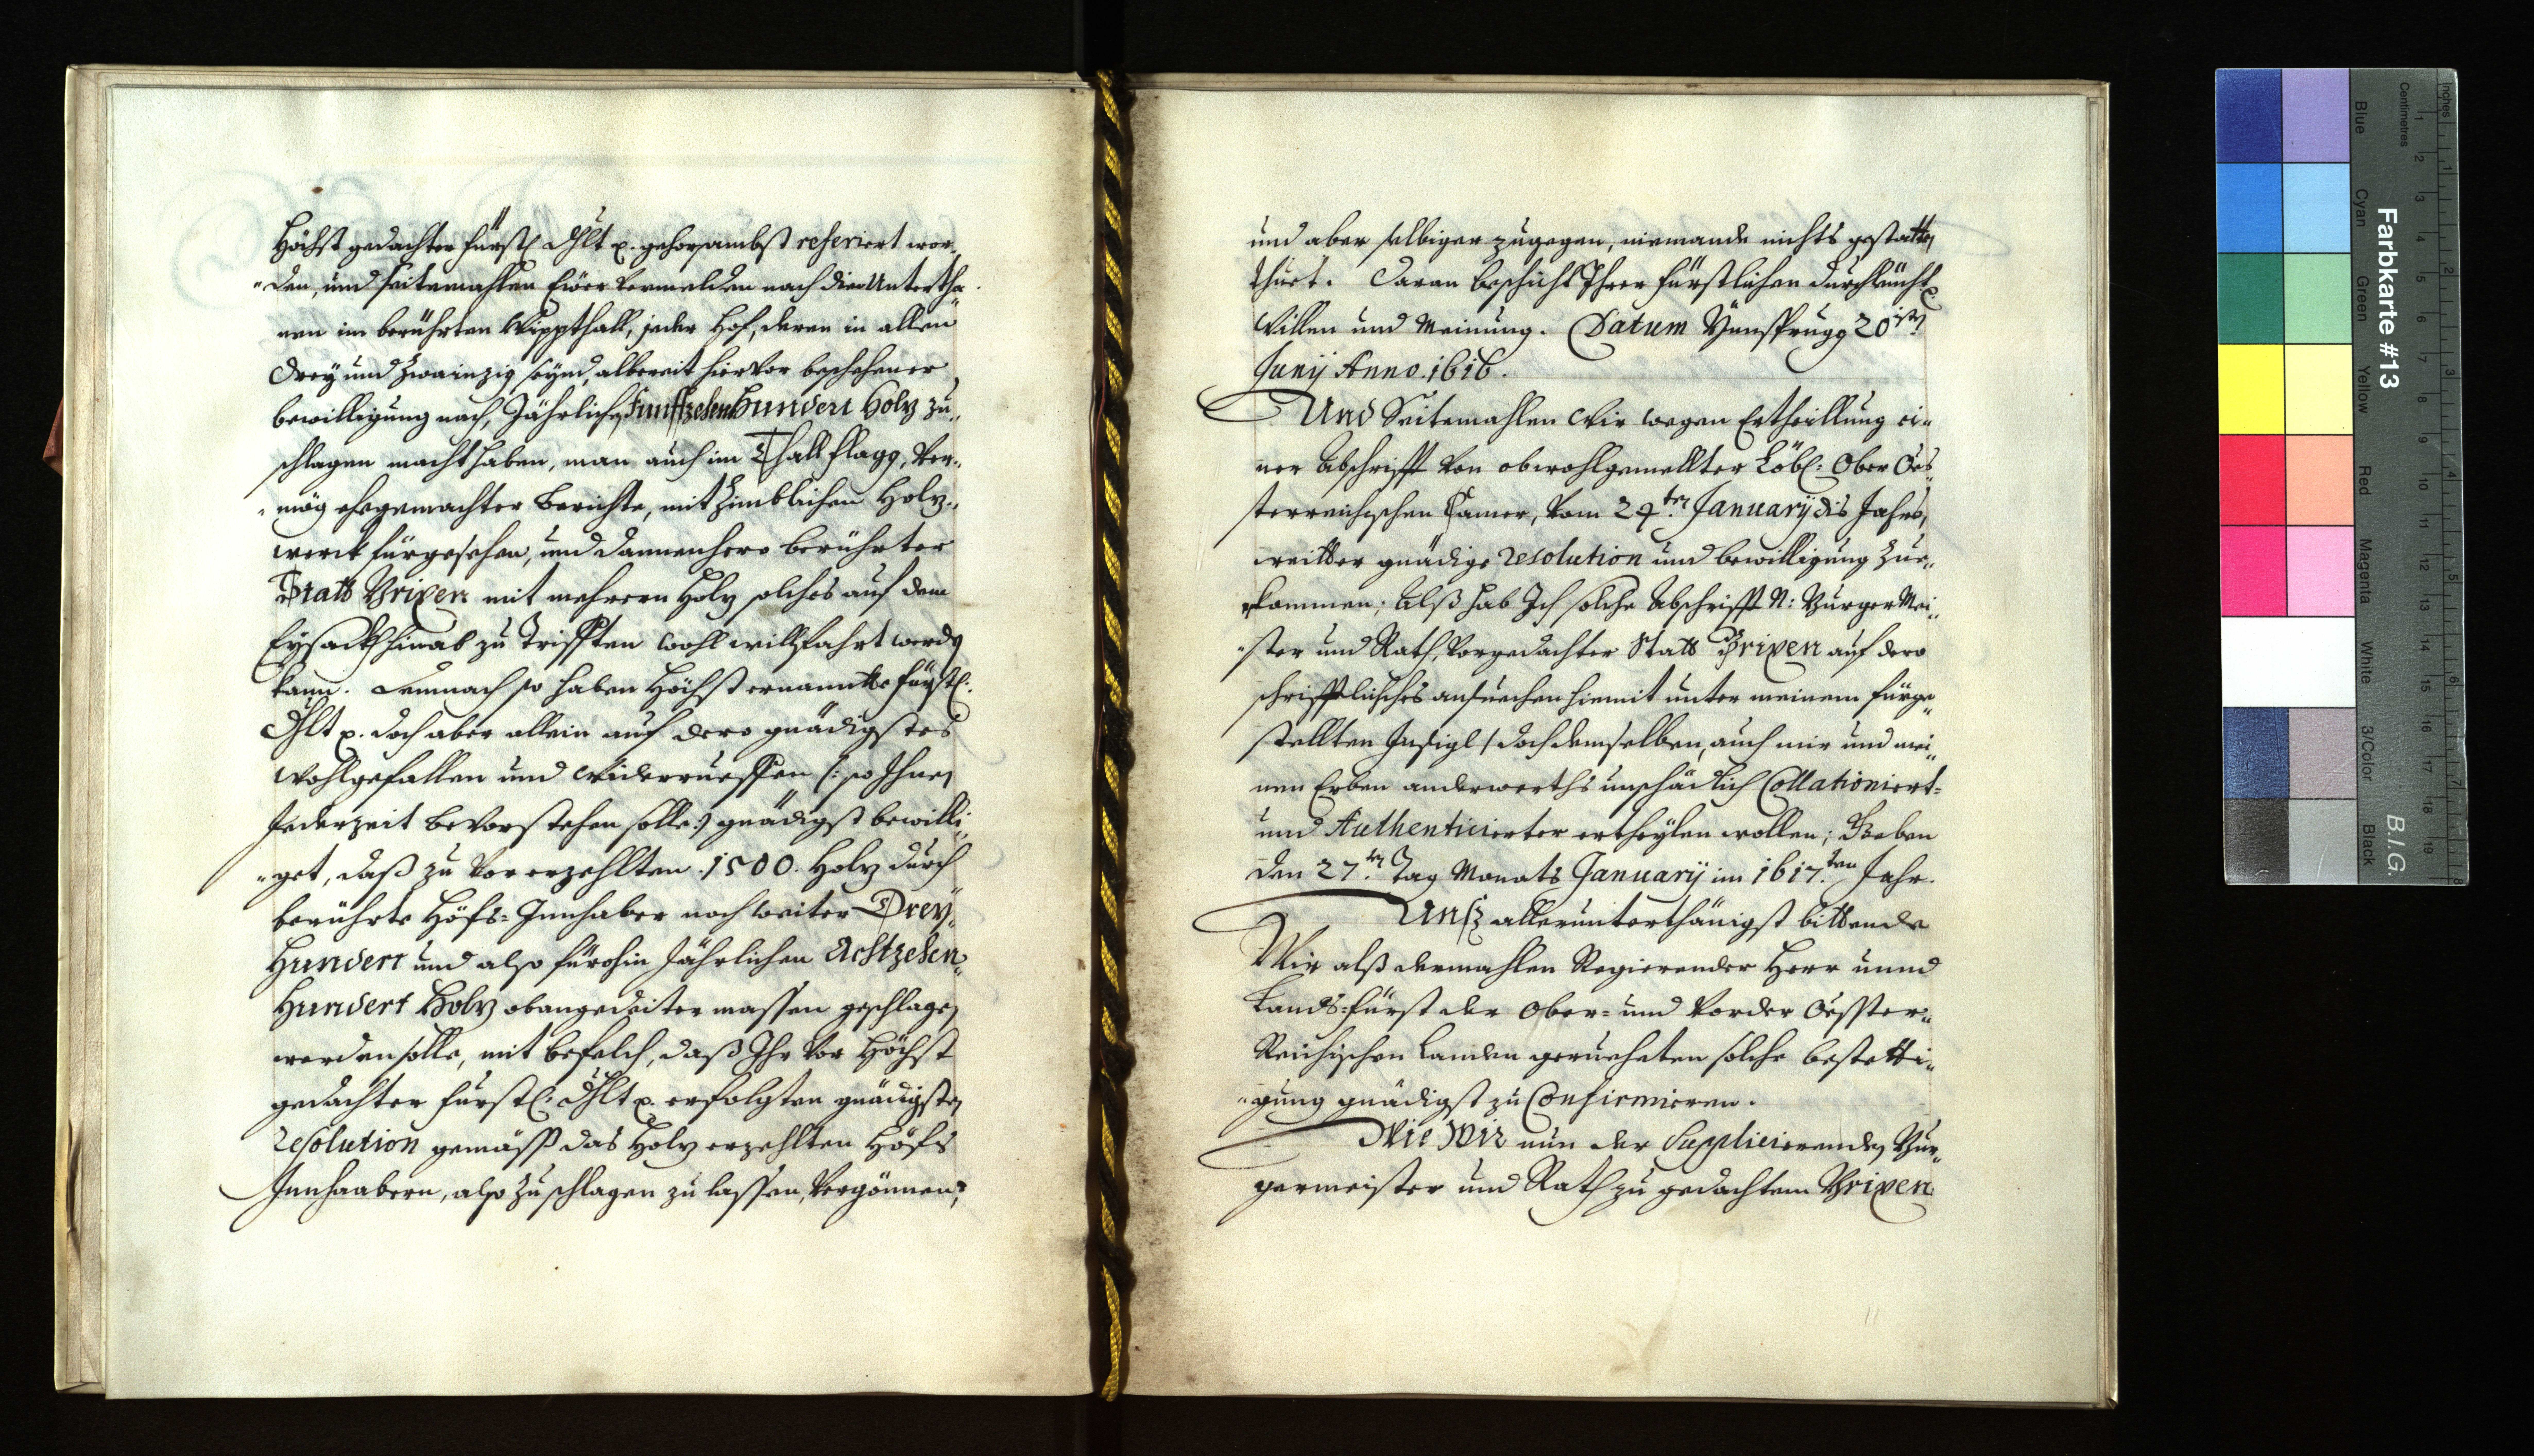 Höchst gedachter fürstl: Dhlt p. gehorsambst referiert wor„
„den, und seitemahlen Ewer vermelden nach die Untertha„
nen im berührten Wippthall, jeder Hof, deren in allen
Drey und Zwainzig seynd, albereit hievor beschehener
bewilligung nach, Jährlichen Fünffzehen Hundert Holz zu„
schlagen macht haben, man auch im Thall Flagg, Ver„
„mög ehegemachter Berichte, mit Zimblichen Holz„
werck fürgesehen, und dannenhero berührter
Statt Brixen mit mehrern Holz solches auf dem
Eysackh hinab zu Trifften wohl willfahrt werden
kann. Demnach so haben Höchsternannte fürstl:
Dhlt p. doch aber allein auf dero gnädigstes
Wohlgefallen und Widerrueffen (: so Ihnen
Jederzeit bevorstehen solle :) gnädigst bewilli„
„get, daß zu vorerzehlten 1500. Holz durch
berührte Höfs=Innhaber noch weiter Drey„
Hundert und also fürohin Jährlichen Achtzehen„
Hundert Holz obangedeiter massen geschlagen
werden solle, mit befelch, daß Ihr vor Höchst
gedachter fürstl: Dhlt p. erfolgten gnädigsten
resolution gemäß das Holz erzehlten Höfs
Innhaabern, also zu schlagen zu lassen, vergönnen,
und aber selbigen zugegen, niemande nichts gestatten
thuet. Daran beschicht Ihrer Fürstlichen Durchleucht p.
Willen und Meinung. Datum Ynnsprugg 20isten
Junij Anno. 1616.
Und Seitemahlen Wir wegen Ertheillung ei„
ner Abschrifft von obwohlgemellter Löbl: Ober Oes„
sterreichischen Camer, vom 24ten January dis Jahrs,
weitter gnädige resolution und bewilligung Zue„
kommen; Alß hab Ich solche Abschrifft N: Burger Mei„
„ster und Rath, vorgedachter Statt Brixen auf dero
schrifftliches ansuechen hiemit unter meinem fürge„
stellten Insigl / doch demselben, auch mir und mei„
nen Erben anderwerths unschädlich Collationiert=
und Authenticierter ertheylen wollen; Geben
den 27ten Tag Monats January im 1617ten Jahr.
Unß allerunterthänigst bittende
Wir alß dermahlen Regierender Herr unnd
Lands=fürst der Ober= und Vorder Oesster„
Reichischen Landen gerueheten solche bestetti„
„gung gnädigst zu Confirmieren.
Wie Wir nun der Supplicierenden Bur„
germeister und Rath zu gedachtem Brixen
Farbkarte #13
B.I.G.
Blue
Cyan
Green
Yellow
Red
Magenta
White
3/Color
Black
Centimetres
Inches